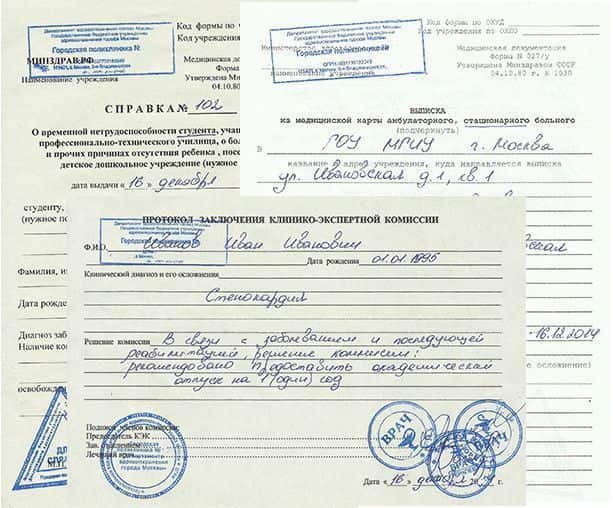 Код формы по
Код учреждения
Департамент здравоохранения города Москвы
Государственное бюджетное учреждение
здравоохранения города Москвы
Городская поликлиника №
МИНЗДРАВ.РФ
Наименование учреждения
Медицинская д
Форма
Утверждена Мин
04.10.80
СПРАВКА № 102
О временной нетрудоспособности студента, учащ
профессионально-технического училища, о бол
и прочих причинах отсутствия ребенка, посе
детское дошкольное учреждение (нужное
дата выдачи « 16 » декабря
студенту,
(нужное по
Фамилия, и
Дата рожде
Диагноз заб
Наличие ко
освобожд
Код формы по ОКУД
Код учреждения по ОКПО
Департамент здравоохранения города Москвы
Государственное бюджетное учреждение
здравоохранения города Москвы
Городская поликлиника №
Министерство
наименование учреждения
Медицинская документация
Форма N 027/у
Утверждена Минздравом СССР
04.10.80 г. N 1030
ВЫПИСКА
из медицинской карты амбулаторного, стационарного больного
(подчеркнуть)
В ГОУ МГИУ г. Москва
название и адрес учреждения, куда направляется выписка
ул. Ивановская д.1, кв.1
вская
-16.12.2014
е осложнение)
ПРОТОКОЛ ЗАКЛЮЧЕНИЯ КЛИНИКО-ЭКСПЕРТНОЙ КОМИССИИ
Городская поликлиника №
Ф.И.О. Иванов Иван Иванович
Дата рождения 01.01.1995
Клинический диагноз и его осложнения
Стенокардия
Решение комиссии В связи с заболеванием и последующей
реабилитацией, решение комиссии:
рекомендовано предоставить академический
отпуск на 1 (один) год
Подписи членов комиссии:
Председатель КЭК
Зав. отделением
Лечащий врач
ВРАЧ
ВРАЧ
Дата « 16 » декабря 20 г.